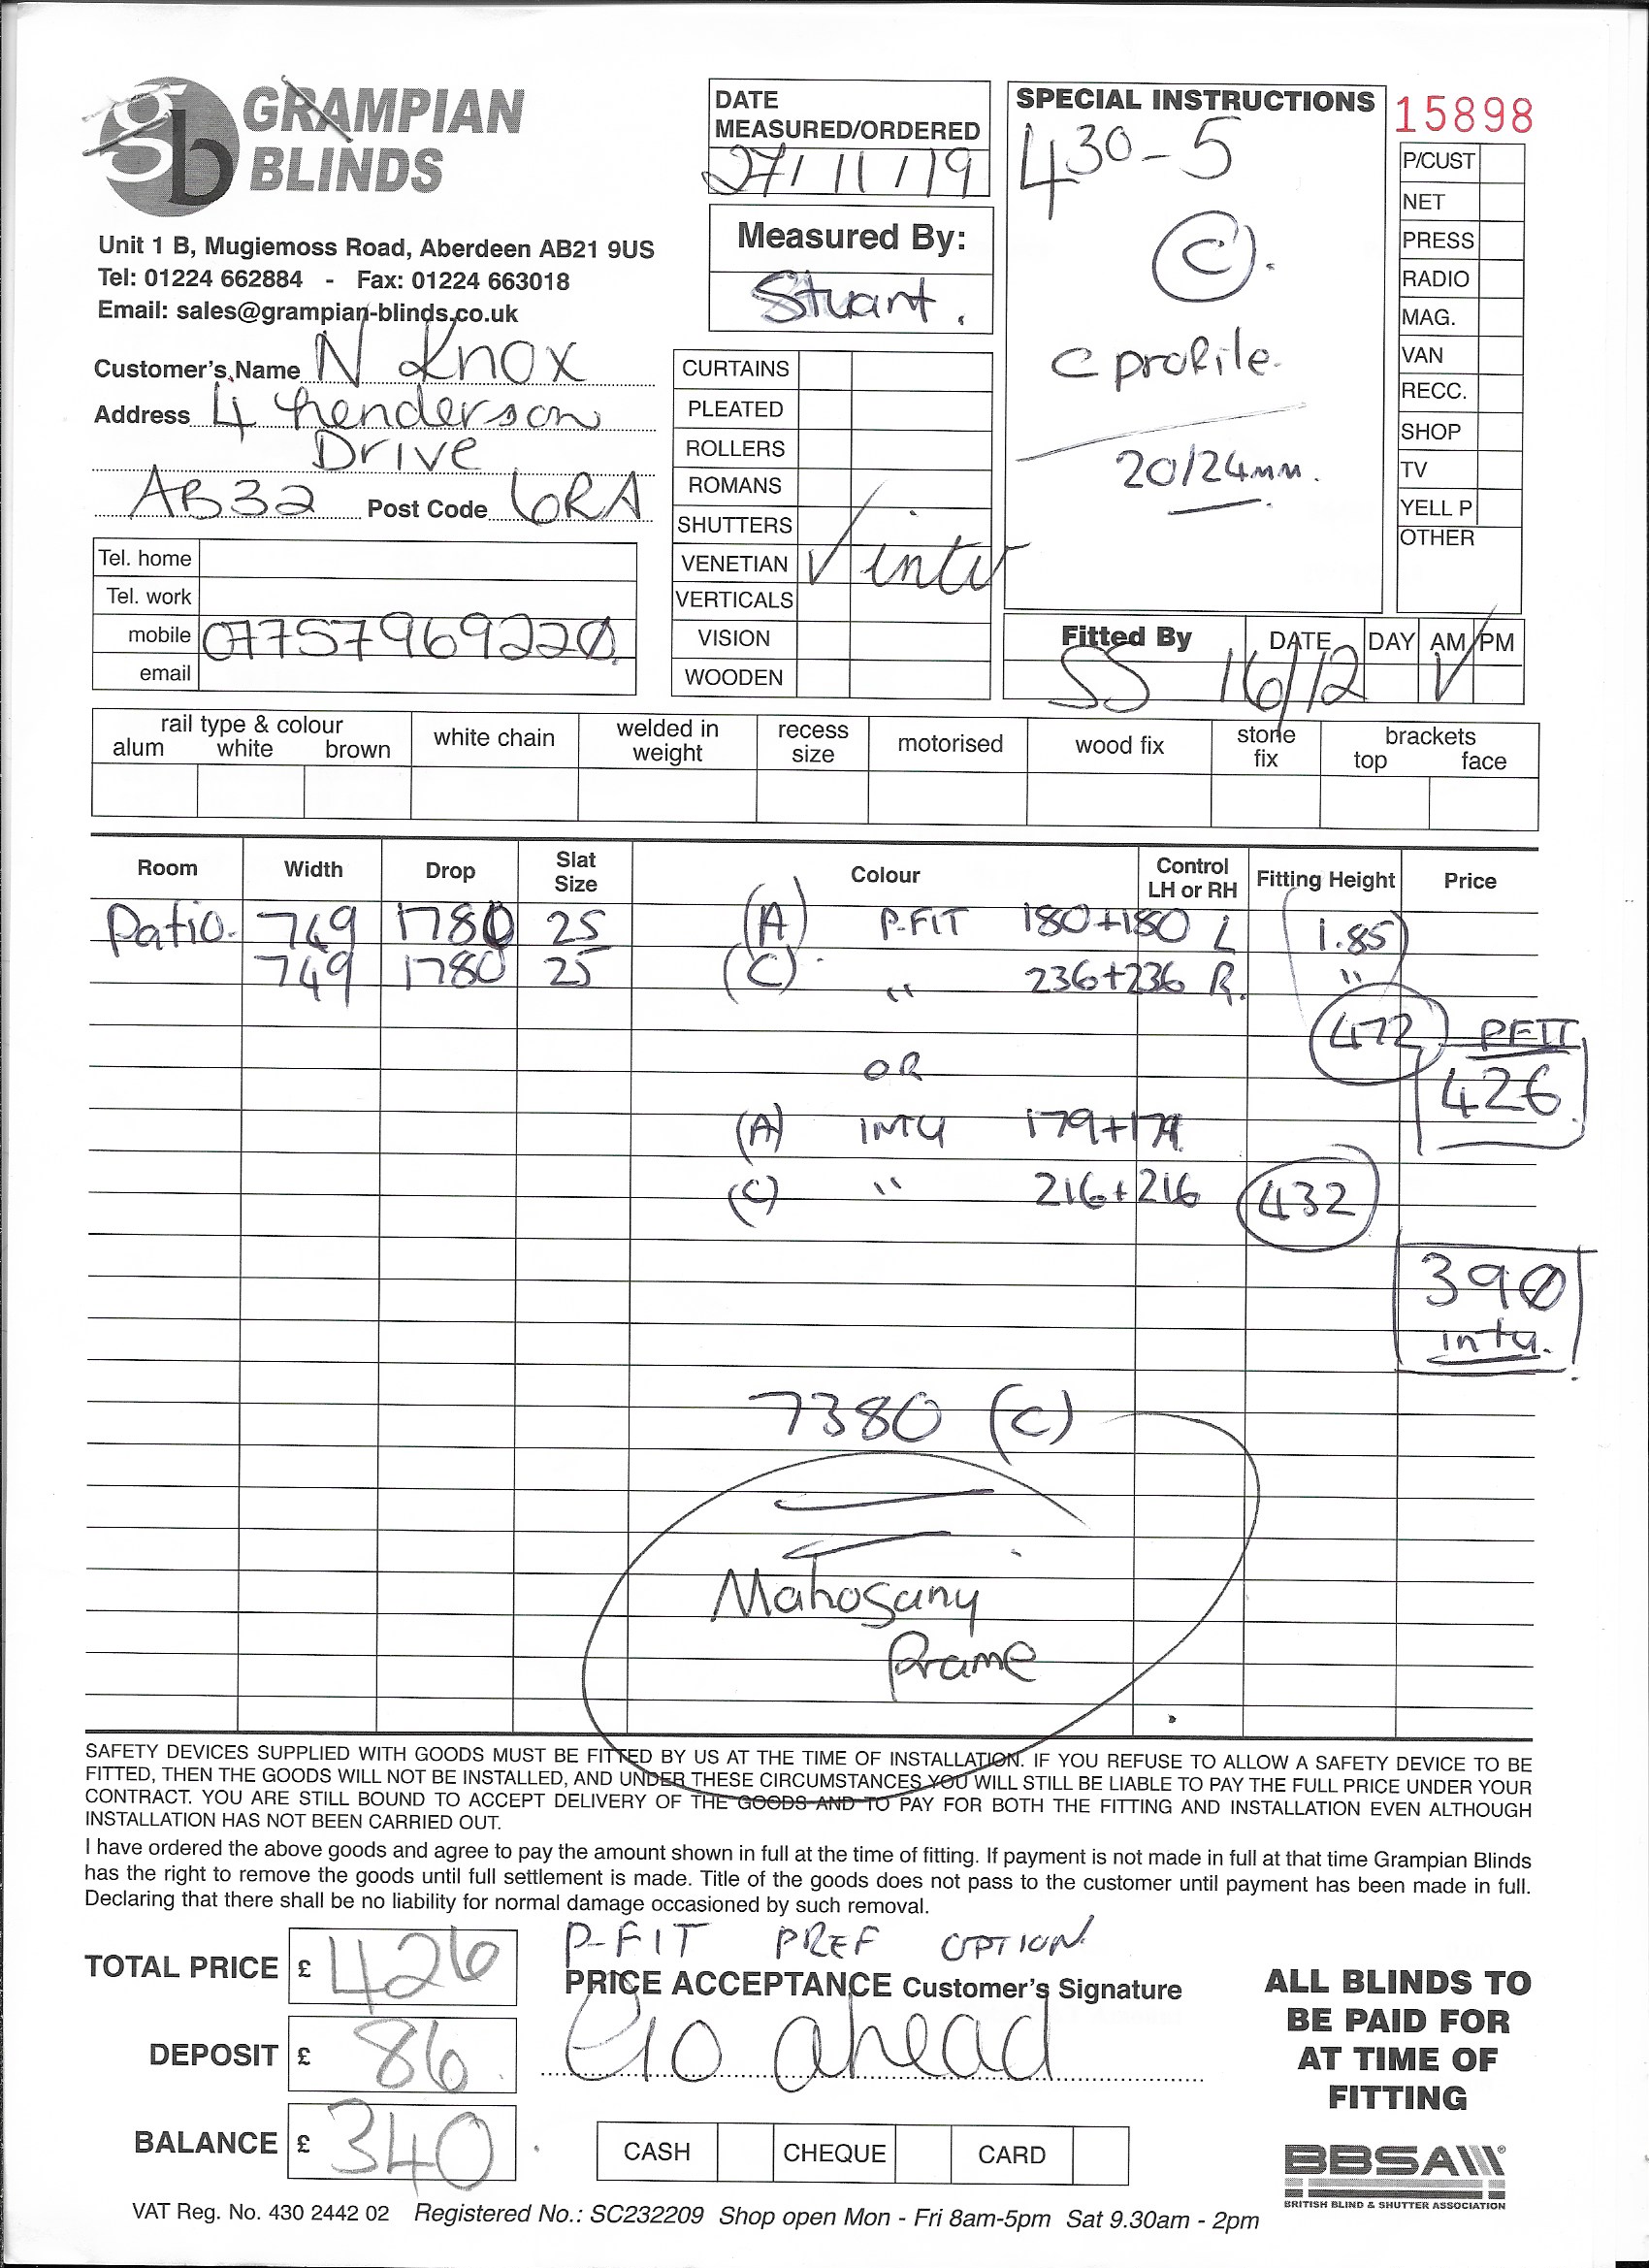 gb GRAMPIAN
BLINDS
Unit 1 B, Mugiemoss Road, Aberdeen AB21 9US
Tel: 01224 662884 - Fax: 01224 663018
Email: sales@grampian-blinds.co.uk
Customer's Name N Knox
Address 4 Henderson
Drive
AB32 Post Code 6RA
Tel. home
Tel. work
mobile 07757969220
email
DATE
MEASURED/ORDERED
27/11/19
Measured By:
Stuart.
CURTAINS
PLEATED
ROLLERS
ROMANS
SHUTTERS
VENETIAN ✓ intu
VERTICALS
VISION
WOODEN
SPECIAL INSTRUCTIONS
430-5
(C).
C profile.
20/24mm.
15898
P/CUST
NET
PRESS
RADIO
MAG.
VAN
RECC.
SHOP
TV
YELL P
OTHER
Fitted By DATE DAY AM/PM
SS 16/12 ✓
rail type & colour
alum white brown
white chain
welded in
weight
recess
size
motorised
wood fix
stone
fix
brackets
top face
Room Width Drop Slat Size Colour Control LH or RH Fitting Height Price
Patio. 749 1780 25 (A) P-FIT 180+180 L 1.85
749 1780 25 (C) " 236+236 R. "
472 PFIT
426
OR
(A) INTU 179+179
(C) " 216+216 432
390
intu.
7380 (C)
Mahogany
frame
SAFETY DEVICES SUPPLIED WITH GOODS MUST BE FITTED BY US AT THE TIME OF INSTALLATION. IF YOU REFUSE TO ALLOW A SAFETY DEVICE TO BE
FITTED, THEN THE GOODS WILL NOT BE INSTALLED, AND UNDER THESE CIRCUMSTANCES YOU WILL STILL BE LIABLE TO PAY THE FULL PRICE UNDER YOUR
CONTRACT. YOU ARE STILL BOUND TO ACCEPT DELIVERY OF THE GOODS AND TO PAY FOR BOTH THE FITTING AND INSTALLATION EVEN ALTHOUGH
INSTALLATION HAS NOT BEEN CARRIED OUT.
I have ordered the above goods and agree to pay the amount shown in full at the time of fitting. If payment is not made in full at that time Grampian Blinds
has the right to remove the goods until full settlement is made. Title of the goods does not pass to the customer until payment has been made in full.
Declaring that there shall be no liability for normal damage occasioned by such removal.
TOTAL PRICE £ 426
DEPOSIT £ 86
BALANCE £ 340
P-FIT PREF OPTION
PRICE ACCEPTANCE Customer's Signature
Go ahead
CASH CHEQUE CARD
ALL BLINDS TO
BE PAID FOR
AT TIME OF
FITTING
BBSA
BRITISH BLIND & SHUTTER ASSOCIATION
VAT Reg. No. 430 2442 02 Registered No.: SC232209 Shop open Mon - Fri 8am-5pm Sat 9.30am - 2pm